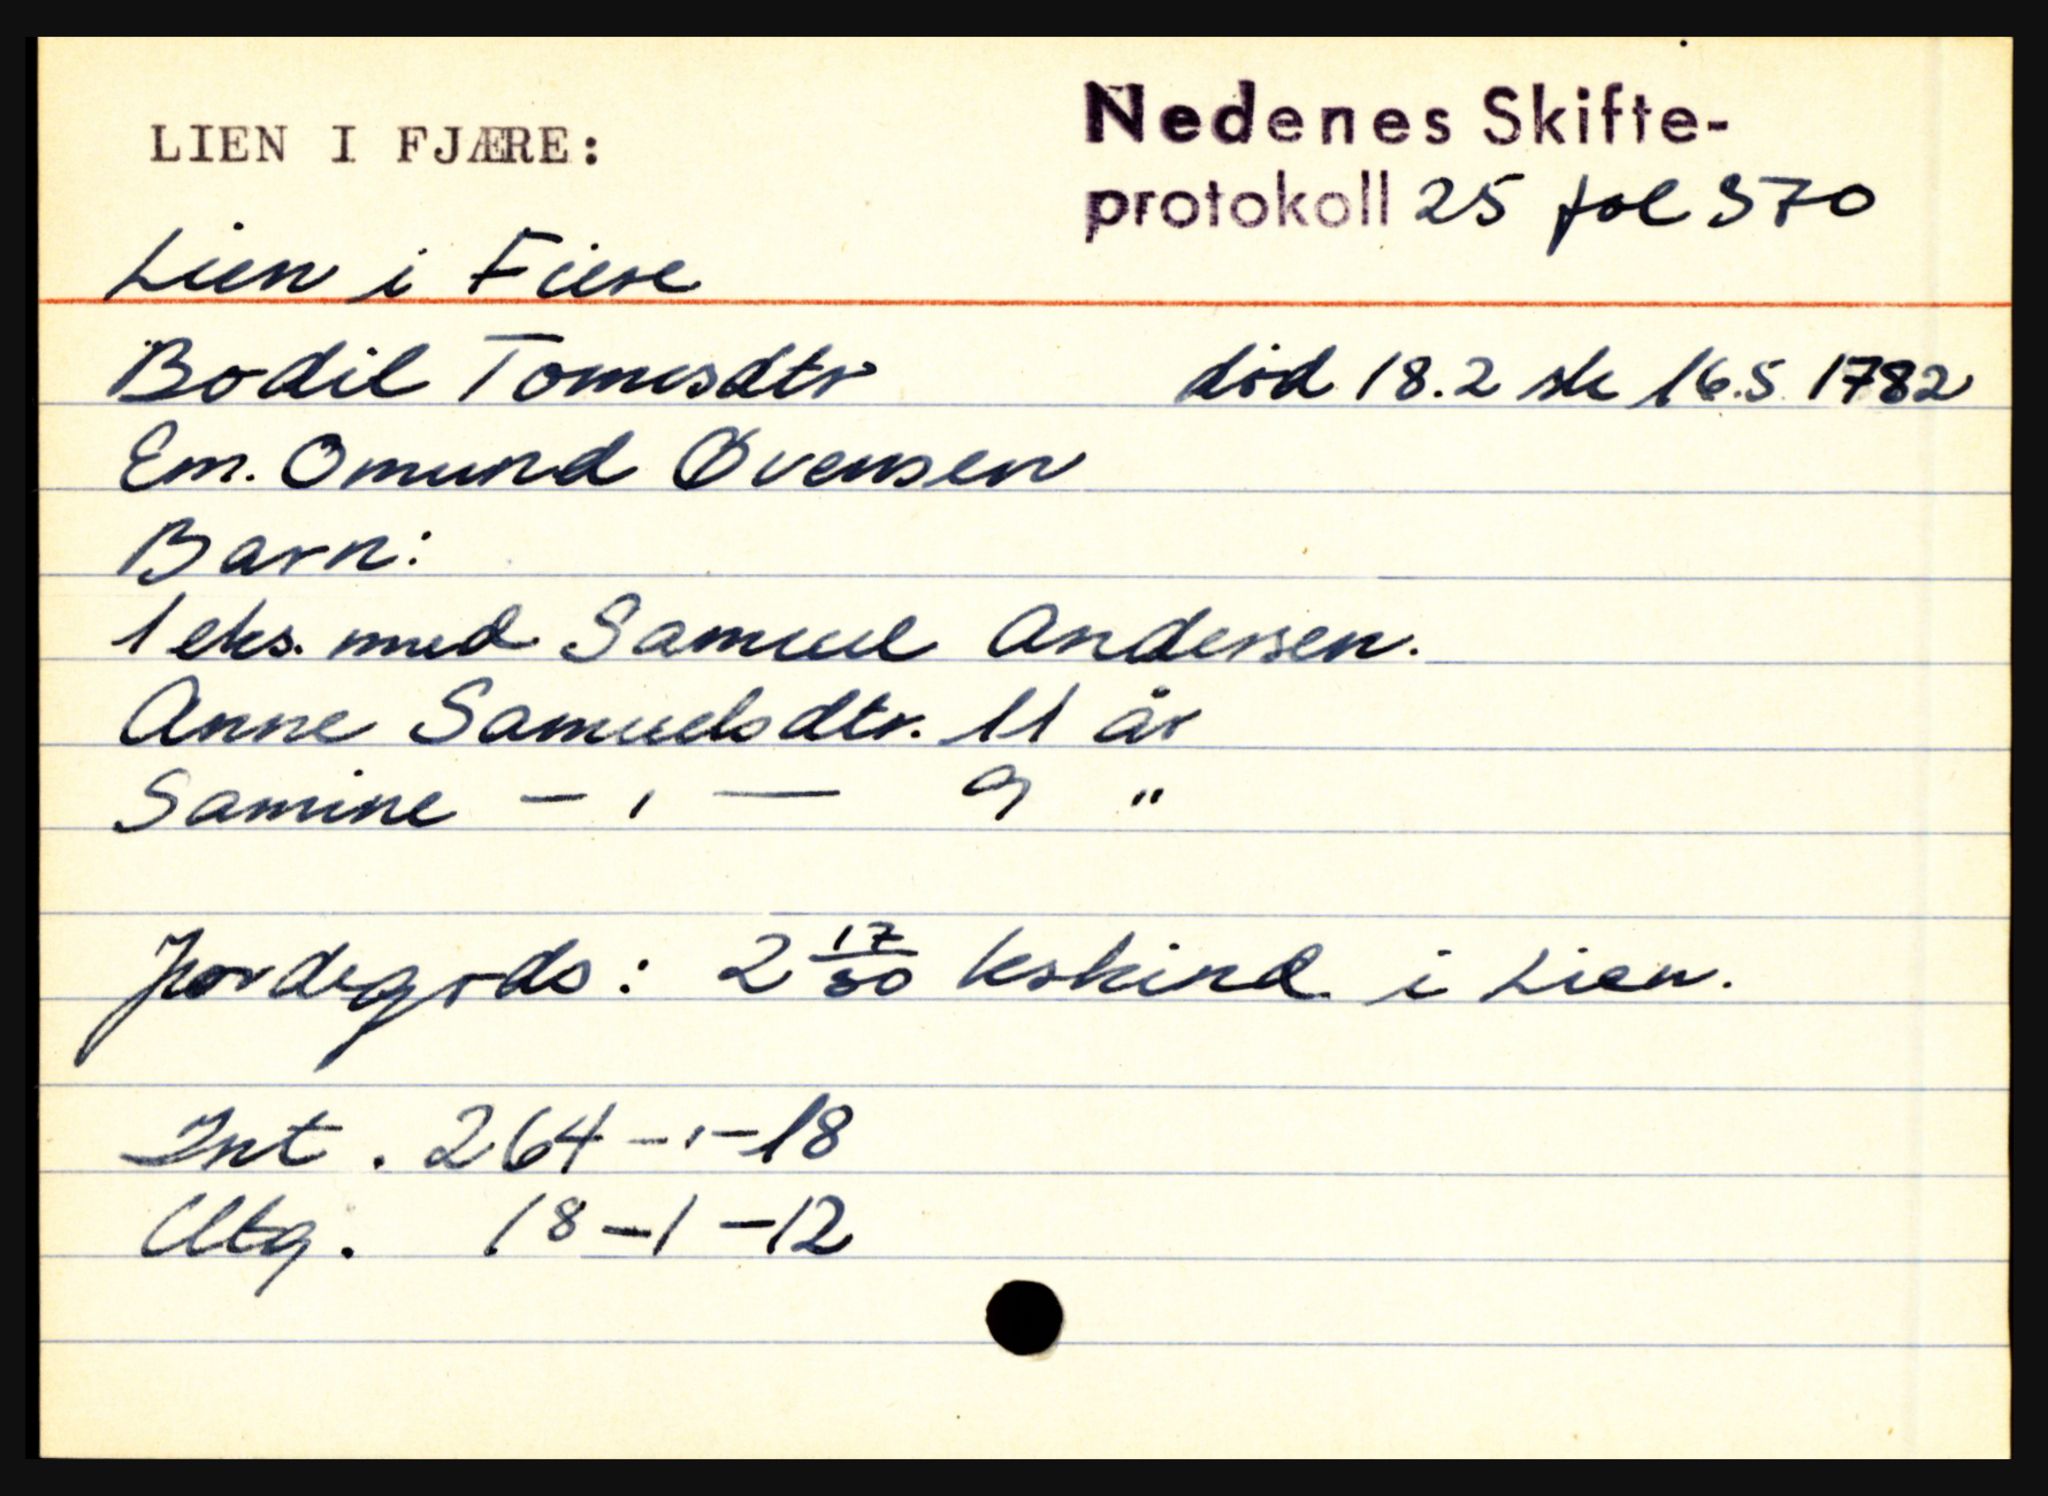 LIEN I FJÆRE:
Nedenes Skifte-
protokoll 25 fol 370
Lien i Fiere
Bodil Tomesdtr død 18.2 sk 16.5 1782
Em. Omund Øvensen
Barn:
1 eks. med Samuel Andersen.
Anne Samuelsdtr. 11 år
Samine - , - 9 "
Jordegods: 2 17/30 kskind i Lien.
Int. 264 - , - 18
Utg. 18 - 1 - 12